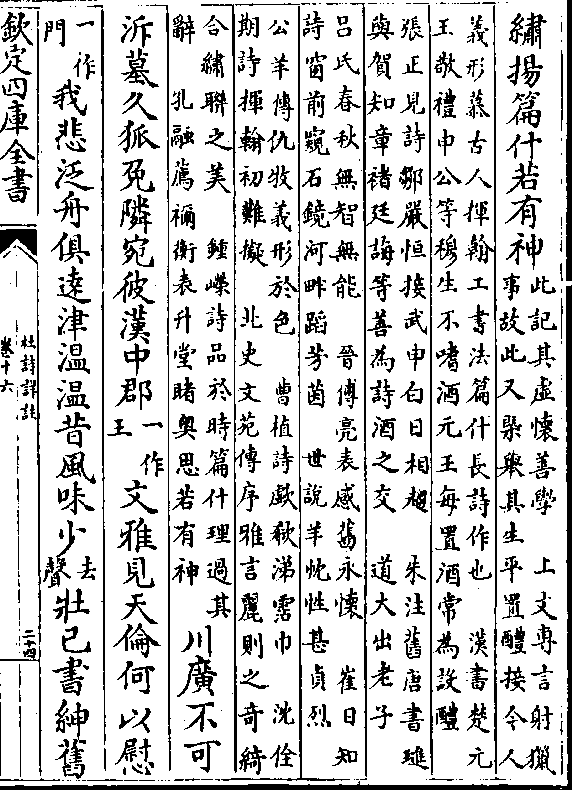 繡揚篇什若有神
此記其虛懷善學 上文專言射獵
事故此又槩舉其生平置醴接今人
義形慕古人揮翰工書法篇什長詩作也 漢書楚元
王敬禮申公等穆生不嗜酒元王每置酒常為設醴
張正見詩鄒嚴恒接武申白日相趨 朱注舊唐書璡
與賀知章褚廷誨等善為詩酒之交 道大出老子
呂氏春秋無智無能 晉傅亮表感舊永懷 崔日知
詩窗前窺石鏡河畔蹈芳茵 世說羊忱性甚貞烈
公羊傳仇牧義形於色 曹植詩歔欷涕霑巾 沈佺
期詩揮翰初難擬 北史文苑傳序雅言麗則之奇綺
合繡聯之美 鍾嶸詩品於時篇什理過其
辭 孔融薦禰衡表升堂睹奧思若有神
川廣不可
泝墓久狐兔隣宛彼漢中郡一作王文雅見天倫何以慰
一作門我悲泛舟俱遠津溫溫昔風味少去聲壯已書紳舊
欽定四庫全書
杜詩詳註
卷十六
二十四